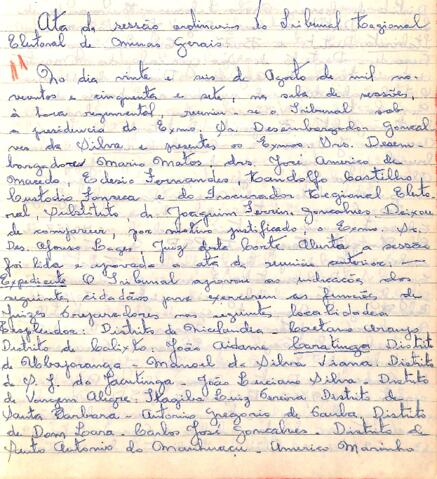 Ata da sessão ordinaria do Tribunal Regional
Eleitoral de Minas Gerais.
No dia vinte e seis de Agosto de mil no-
vecentos e cinquenta e sete, na sala de sessões,
à hora regimental, reuniu-se o Tribunal sob
a presidencia do Exmo. Sr. Desembargador Gonçal
ves da Silva e presentes os Exmos. Srs. Desem-
bargadores Mario Matos, drs. José Americo de
Macedo, Edesio Fernandes, Randolfo Castilho,
Custodio Fonseca e do Procurador Regional Eleito-
ral, Substituto dr. Joaquim Ferreira Gonçalves. Deixou
de comparecer, por motivo justificado, o Exmo. Sr.
Des. Afonso Lages, Juiz desta Corte. Aberta a sessão
foi lida e aprovada a ata da reunião anterior. —
Expediente O Tribunal aprovou as indicações dos
seguintes cidadãos para exercerem as funções de
Juizes Preparadores nas seguintes localidades
Distrito de - Caetano Araujo
Distrito de Calixto, João Caratinga Distrito
de Ubaporanga - Manoel da Silva Viana. Distrito
de S. S. do Itacutinga - João Luciano Silva - Distrito
de Vargem Alegre, Luiz Pereira Distrito de
Santa Barbara - Antonio Gregorio de Distrito
de Dom Lara - Carlos José Gonçalves - Distrito de
Santo Antonio do Manhuaçu - Americo Marinho